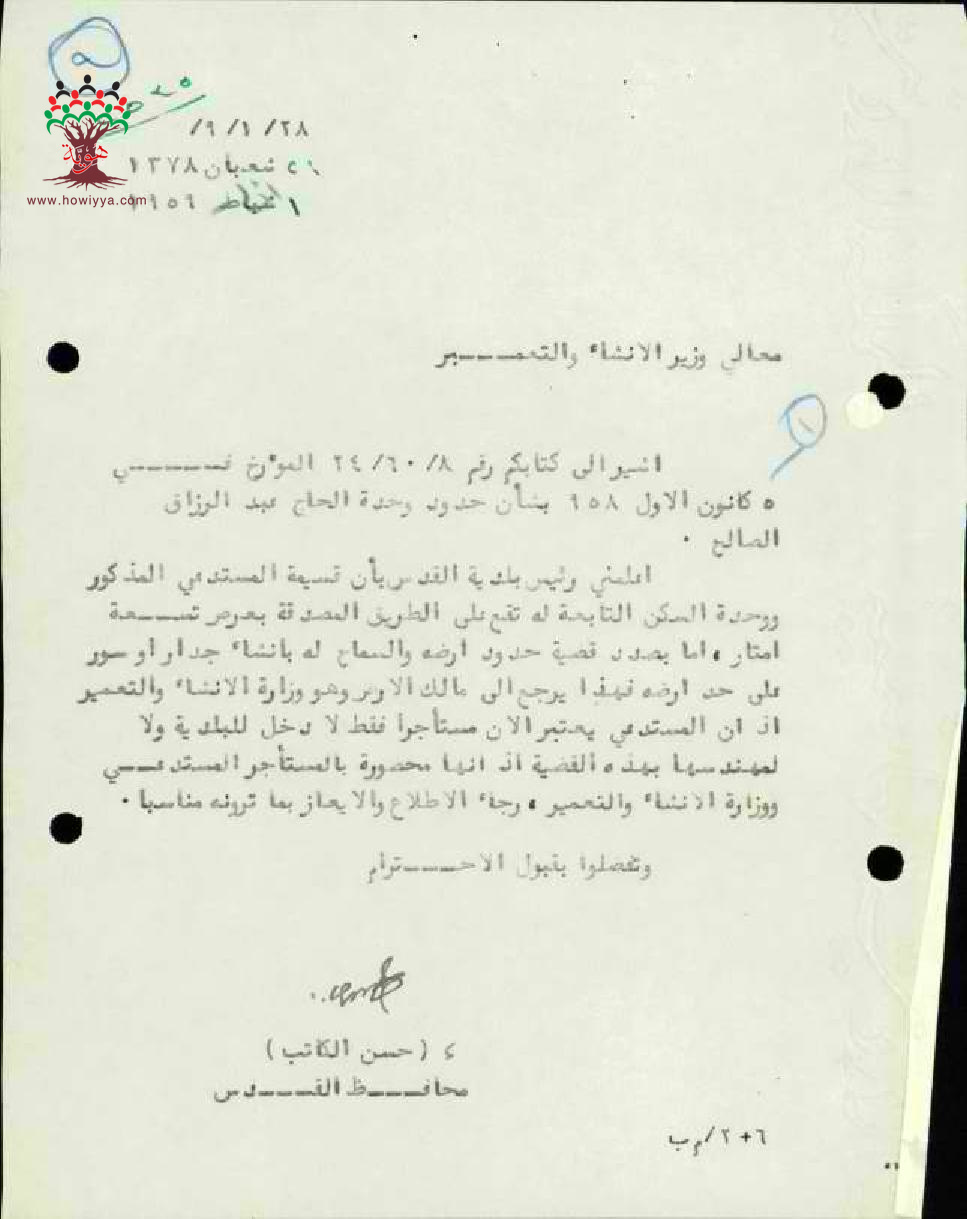 ٥
٥٢٥
٩/١/٢٨/
شعبان ١٣٧٨
١ شباط ١٩٥٩
هوية
www.howiyya.com
معالي وزير الانشاء والتعمـــــير
١
اشير الى كتابكم رقم ٢٤/٦٠/٨ المؤرخ فـــــــي
٥ كانون الاول ٩٥٨ بشأن حدود وحدة الحاج عبد الرزاق
الصالح ٠
اعلمني رئيس بلدية القدس بأن قسيمة المستدعي المذكور
ووحدة السكن التابعة له تقع على الطريق المصدقة بعرض تســـعة
امتار ، اما بصدد قضية حدود ارضه والسماح له بانشاء جدار أو سور
على حد ارضه فهذا يرجع الى مالك الارض وهو وزارة الانشاء والتعمير
اذ ان المستدعي يعتبر الان مستأجرا فقط لا دخل للبلدية ولا
لمهندسها بهذه القضية اذ انها محصورة بالمستأجر المستدعـــي
ووزارة الانشاء والتعمير ، رجاء الاطلاع والايعاز بما ترونه مناسبا ٠
وتفضلوا بقبول الاحــــترام
ع (حسن الكاتب)
محافـــــظ القـــــدس
٢+٦/م ب